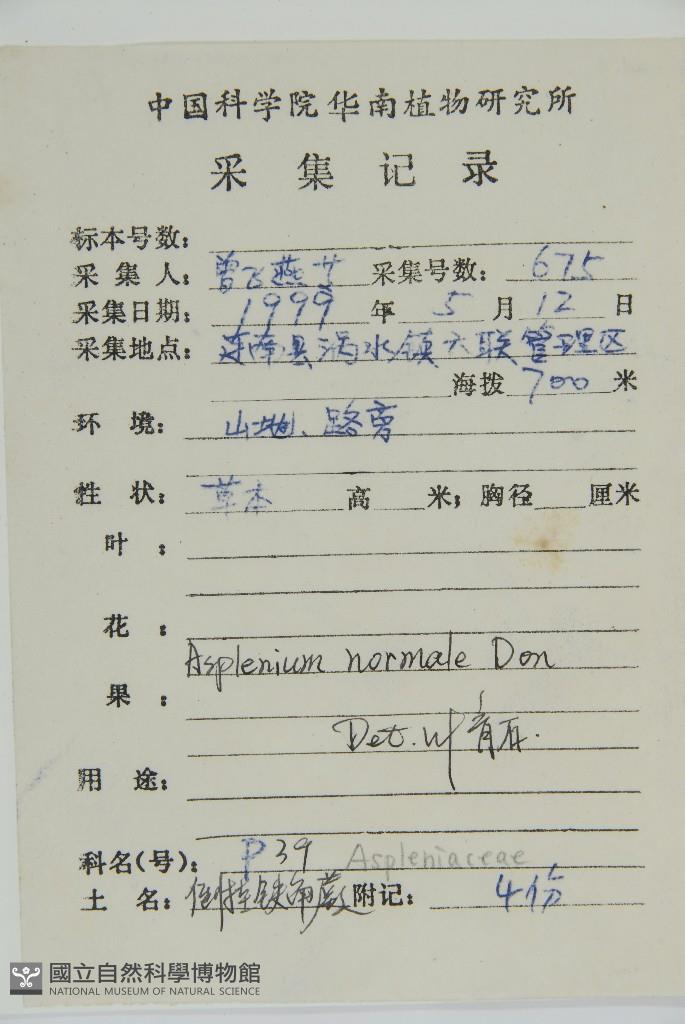 中国科学院华南植物研究所
采集记录
标本号数:
采集人: 曾飞燕 采集号数: 675
采集日期: 1999 年 5 月 12 日
采集地点: 连南县涡水镇六联管理区
海拨 700 米
环境: 山地、路旁
性状: 草本 高 米; 胸径 厘米
叶:
花:
Asplenium normale Don
果:
Det. 叶育石.
用途:
科名(号): P39 Aspleniaceae
土名: 倒挂铁角蕨 附记: 4份
國立自然科學博物館
NATIONAL MUSEUM OF NATURAL SCIENCE